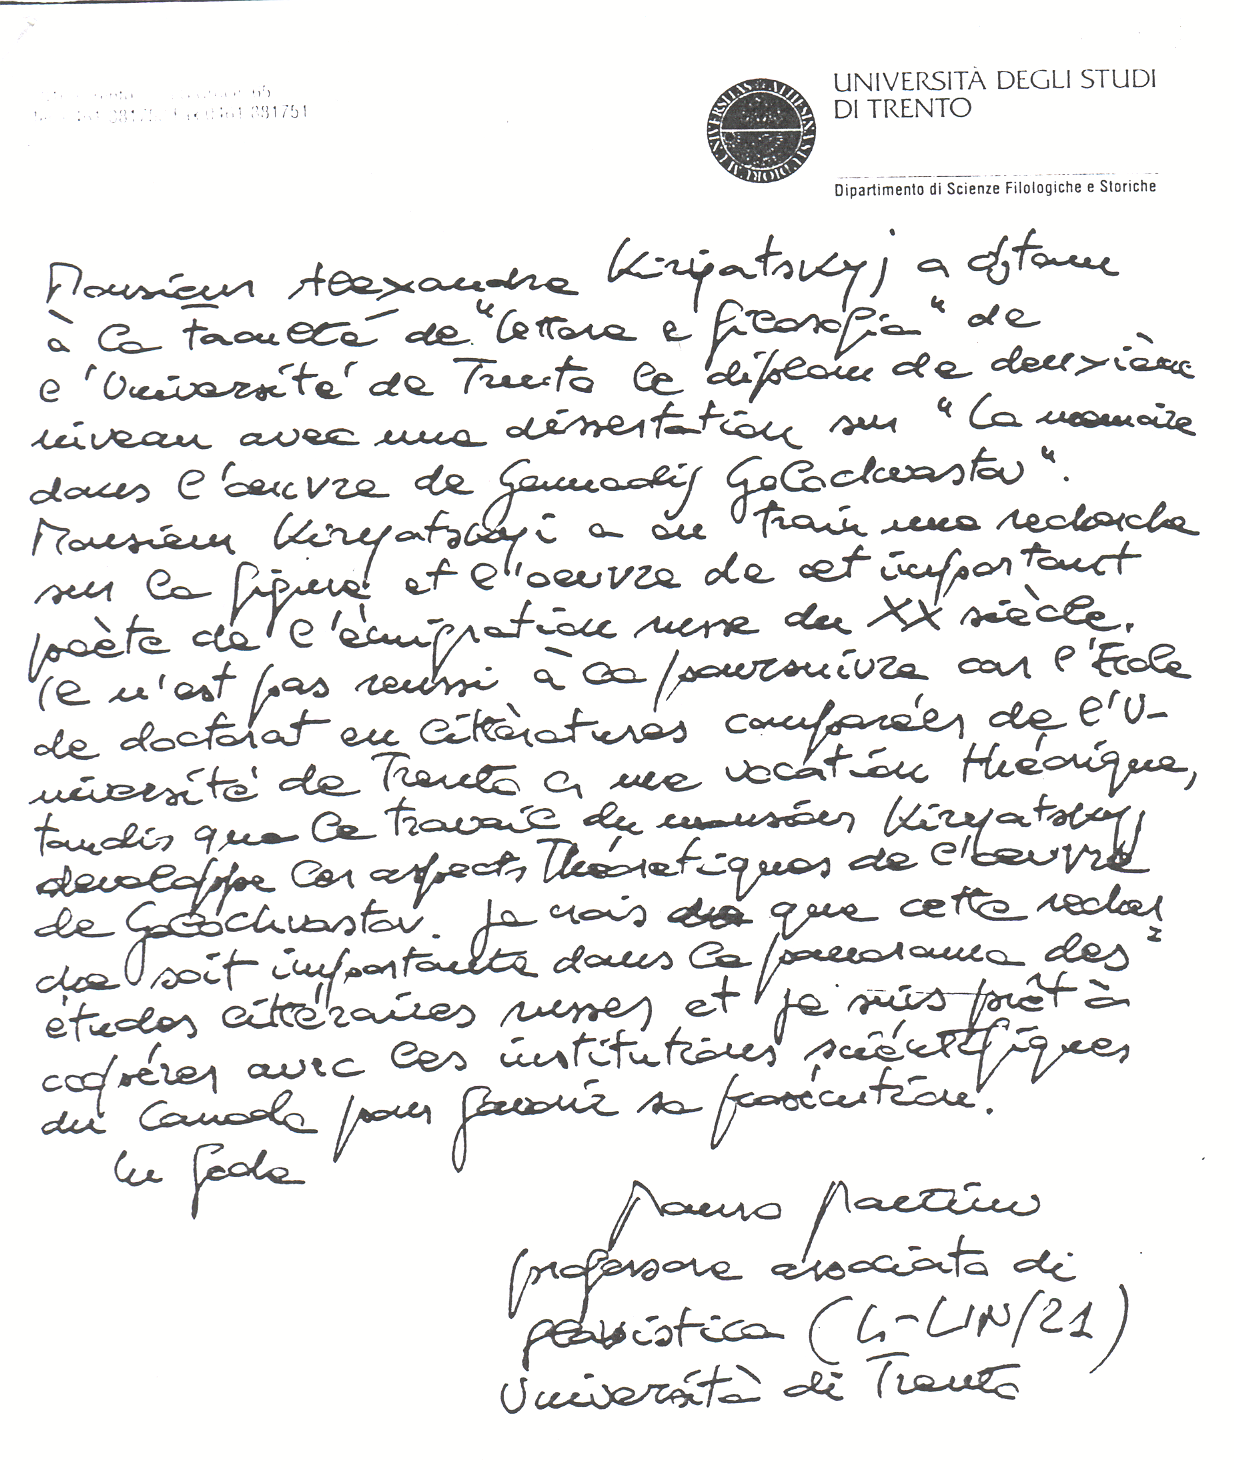 881751
UNIVERSITÀ DEGLI STUDI
DI TRENTO
Dipartimento di Scienze Filologiche e Storiche
Monsieur Alexandre Kiryatskyj a obtenu
à la Faculté de "Lettere e filosofia" de
l'Université de Trento le diplom de deuxième
niveau avec une dissertation sur "La memoire
dans l'oeuvre de Gennadij Golochvastov".
Monsieur Kiryatskyj a en train une recherche
sur la figure et l'oeuvre de cet important
poète de l'èmigration russe du XX siècle.
Il n'est pas reussi à la poursuivre car l'École
de doctorat en littèratures comparées de l'U-
niversité de Trento a une vocation théorique,
tandis que le travail du monsieur Kiryatskyj
developpe les aspects théoretiques de l'oeuvre
de Golochvastov. Je crois que cette recher
che soit importante dans le panorama des
études littéraires russes et je suis prêt à
coopérer avec les institutions sciéntifiques
du Canada pour favorir sa prosécution.
In fede
Mauro Martini
professore associato di
slavistica (L-LIN/21)
Università di Trento